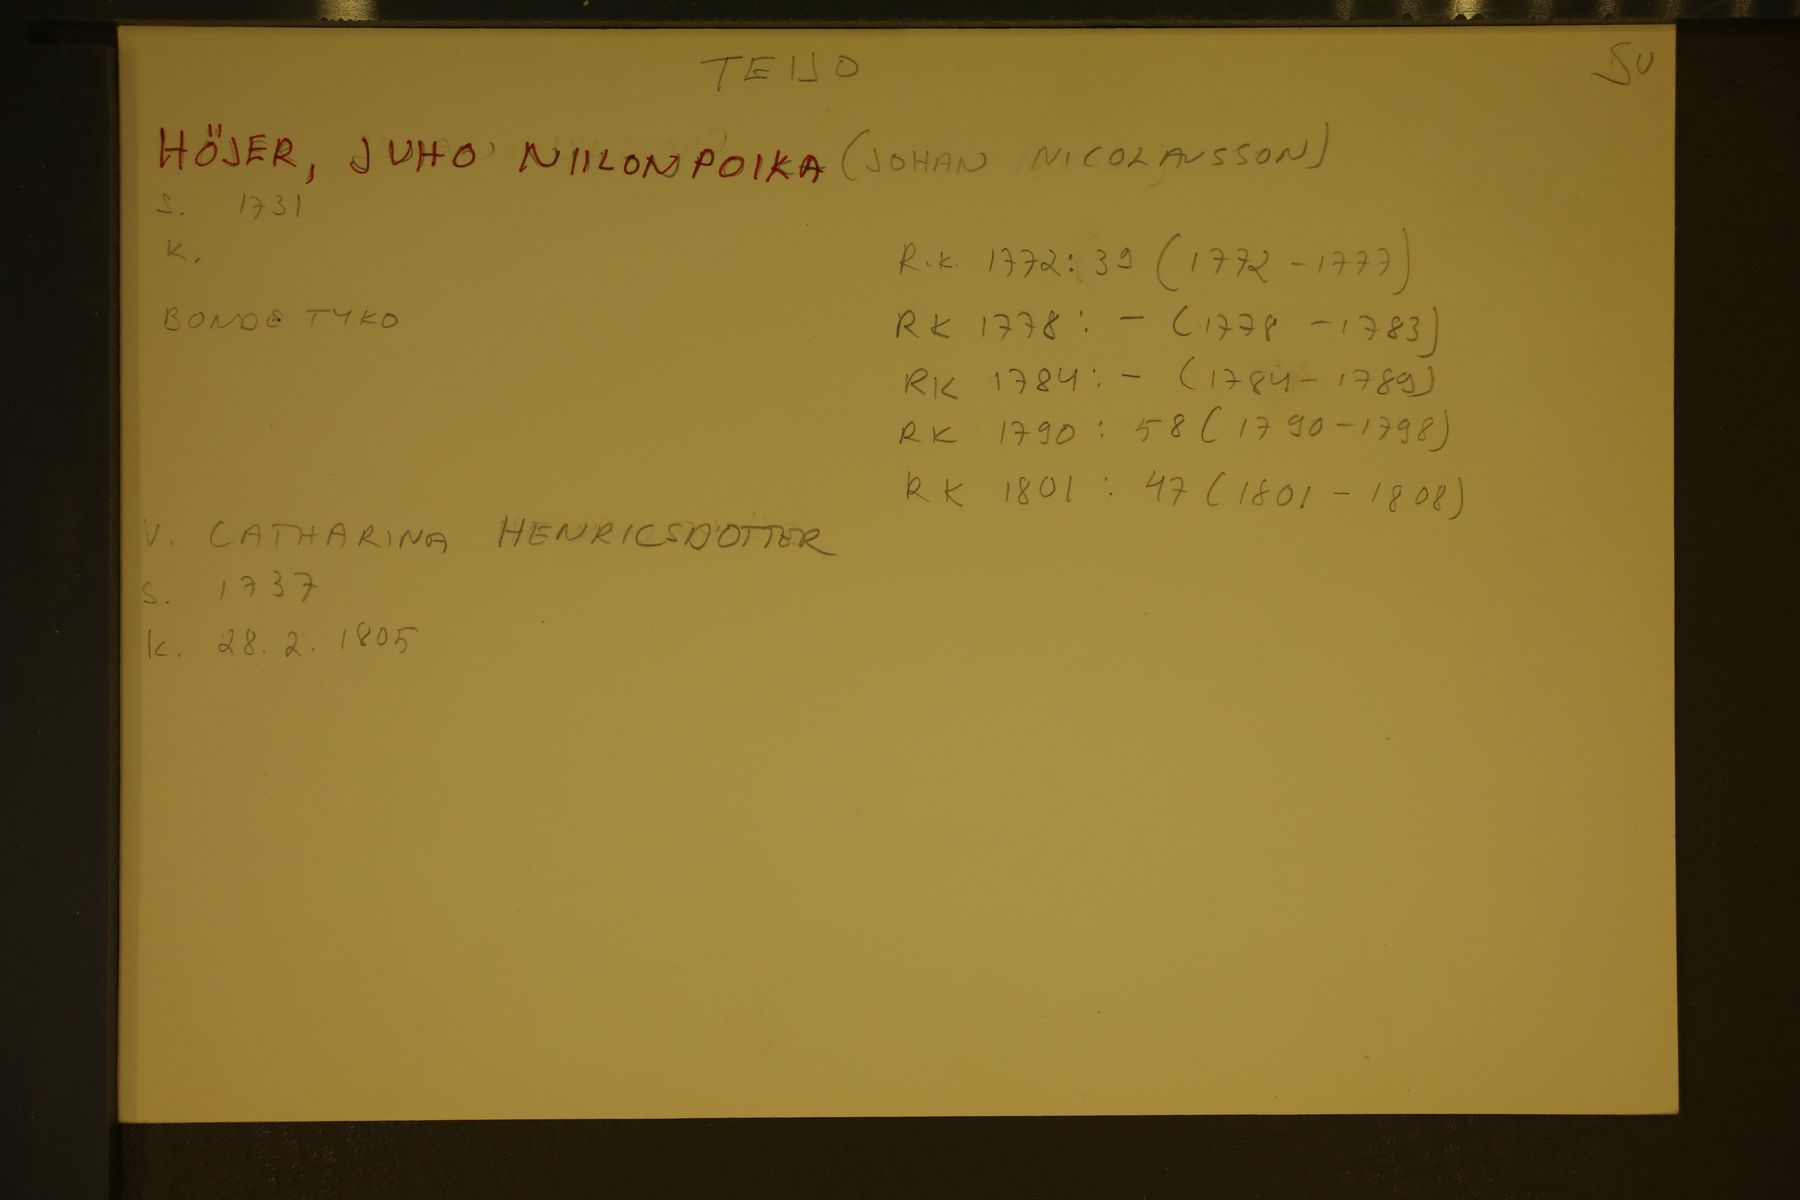 TEIJO
SU
HÖJER, JUHO NIILONPOIKA (JOHAN NICOLAUSSON)
S. 1731
K.
BONDE TYKO
R.K. 1772: 39 (1772 - 1777)
RK 1778: - (1778 - 1783)
RK 1784: - (1784 - 1789)
RK 1790: 58 (1790 - 1798)
RK 1801: 47 (1801 - 1808)
V. CATHARINA HENRICSDOTTER
S. 1737
K. 28. 2. 1805